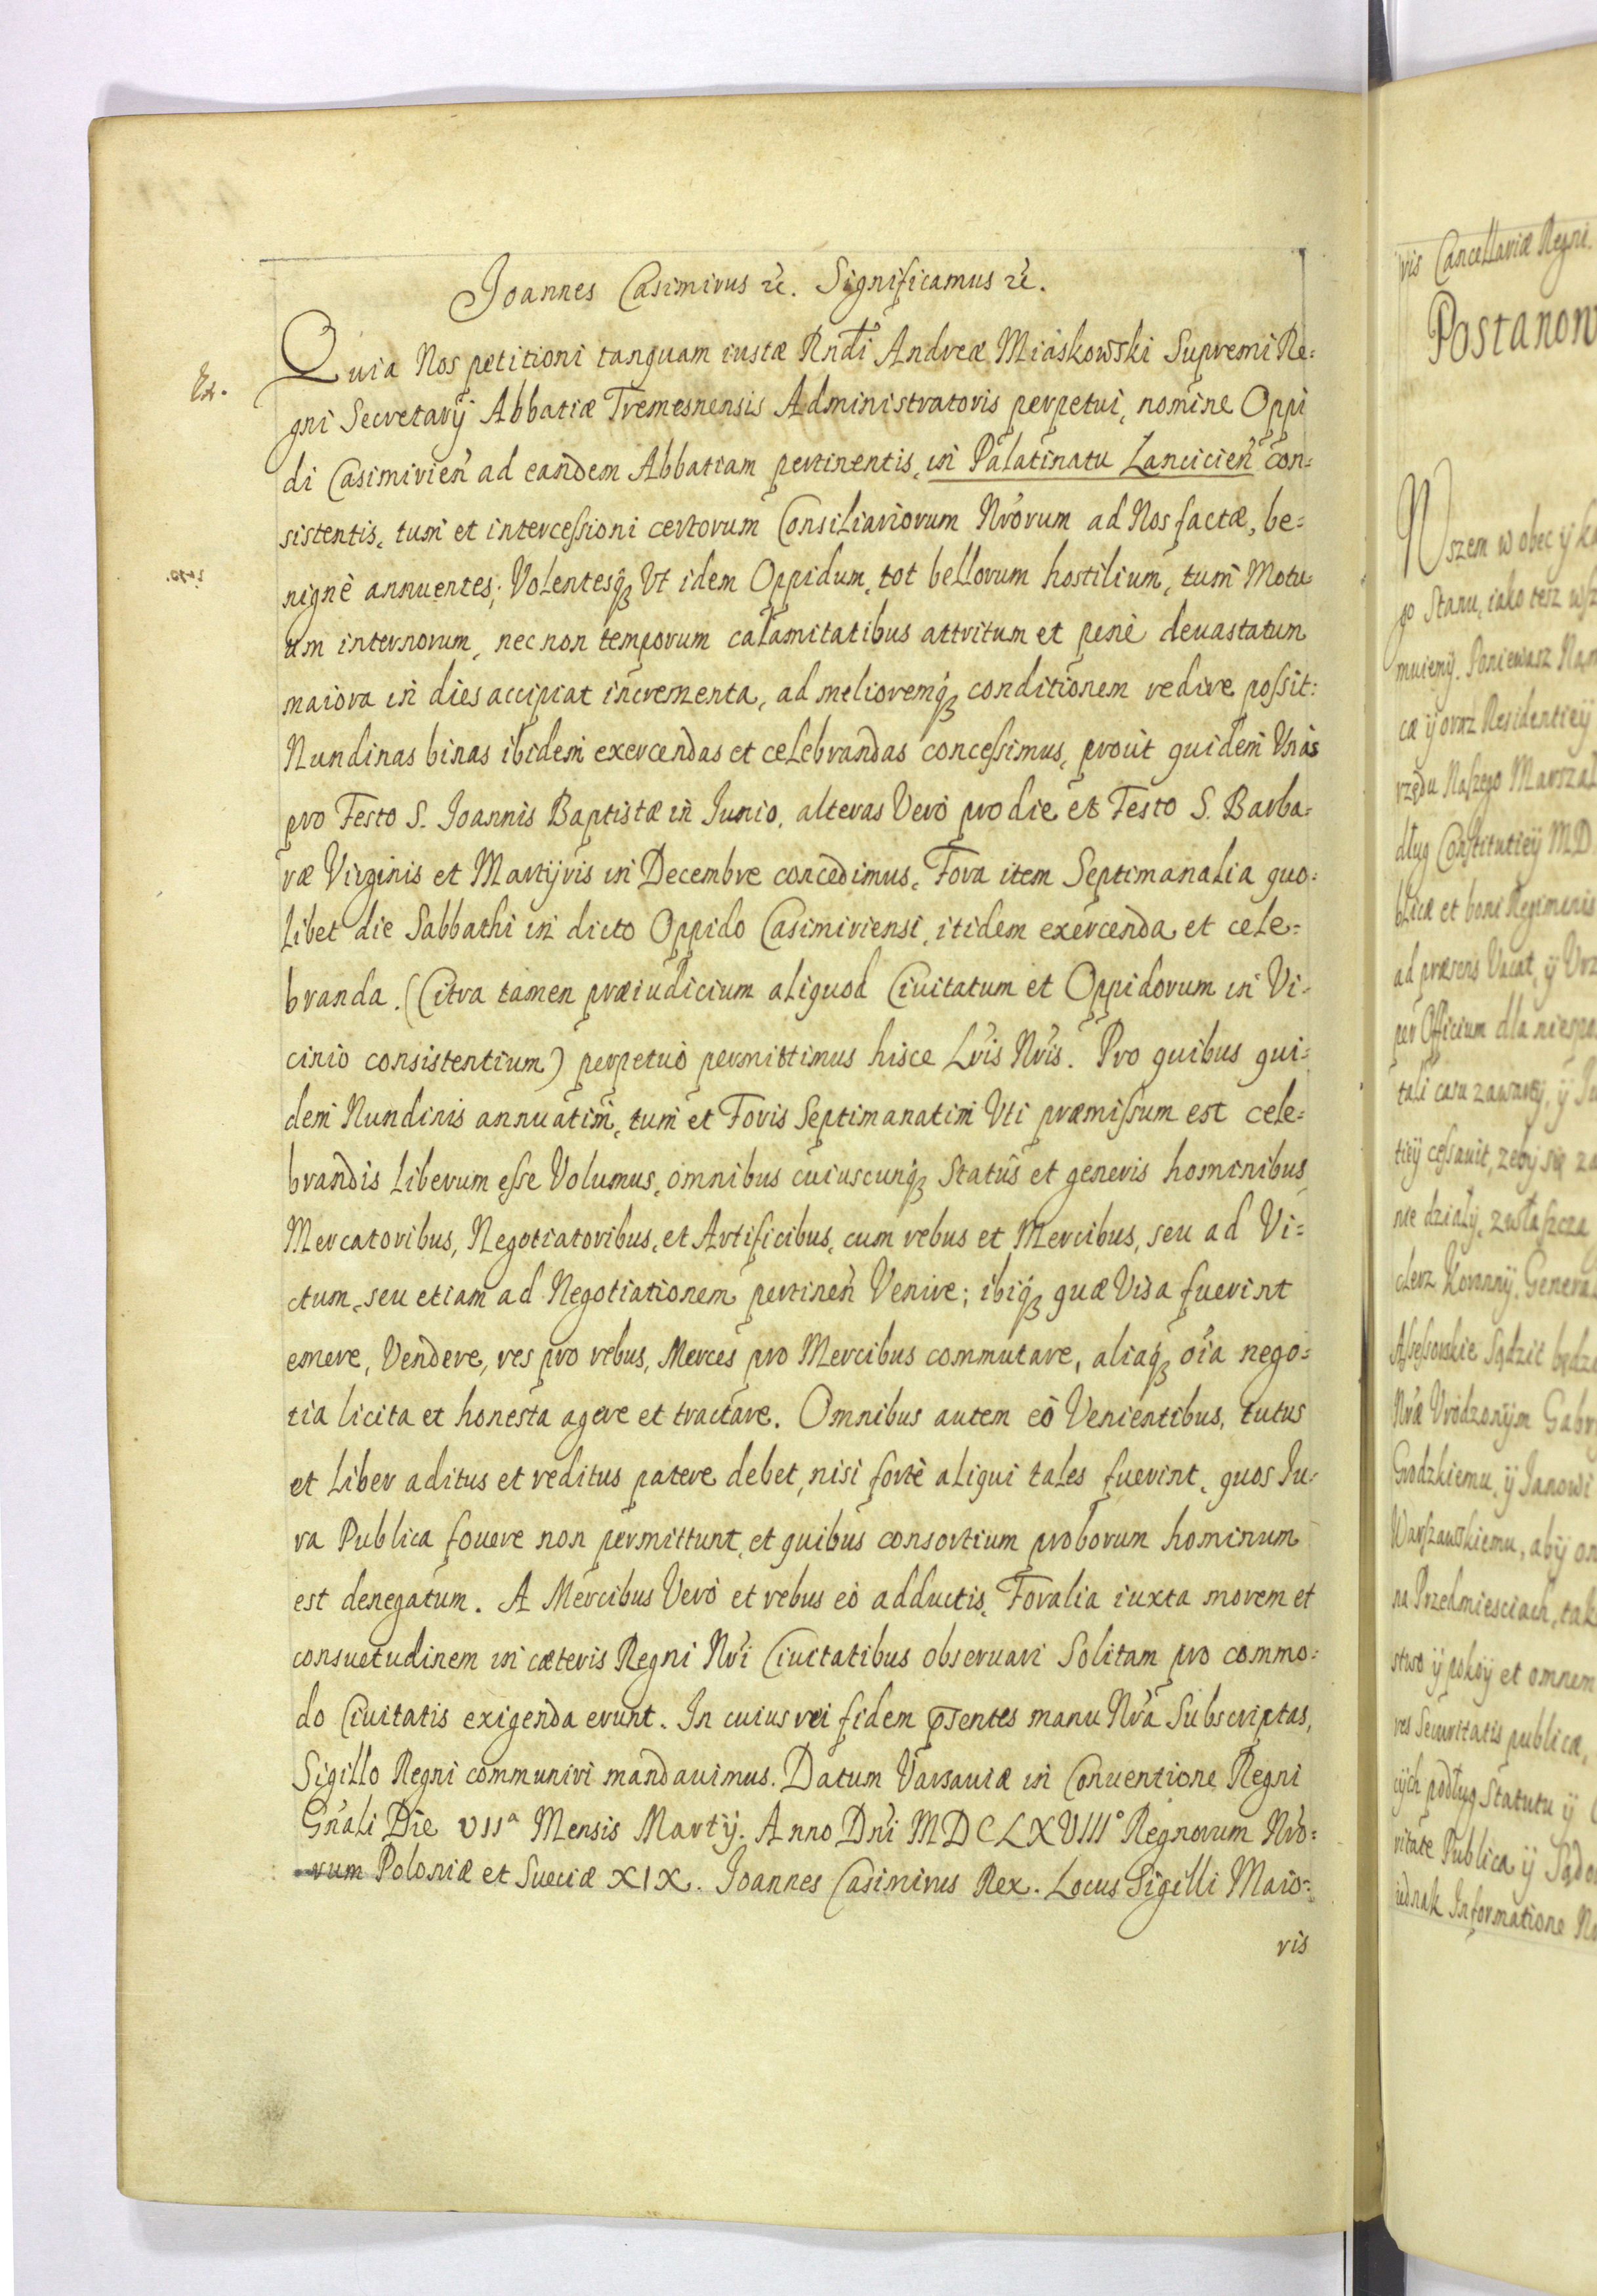 Joannes Casimirus &c. Significamus &c.
Ex.
Quia Nos petitioni tanquam iustæ Rndi Andreæ Miaskowski Supremi Re=
gni Secretarÿ Abbatiæ Tremesnensis Administratoris perpetui, nomine Oppi
di Casimirień ad eandem Abbatiam pertinentis, in Palatinatu Lancicień con=
sistentis, tum et intercessioni certorum Consiliariorum Nrorum ad Nos factæ, be=
nignè annuentes; Volentesq3 Vt idem Oppidum, tot bellorum hostilium, tum Motu
um internorum, nec non temporum calamitatibus attritum et penè deuastatum
maiora in dies accipiat incrementa, ad melioremq3 conditionem redire possit:
Nundinas binas ibidem exercendas et celebrandas concessimus, prout quidem Vnas
pro Festo S. Joannis Baptistæ in Junio, alteras Verò pro die et Festo S. Barba=
ræ Virginis et Martÿris in Decembre concedimus, Fora item Septimanalia quo=
libet die Sabbathi in dicto Oppido Casimiriensi, itidem exercenda et cele=
branda. (Citra tamen præiudicium aliquod Ciuitatum et Oppidorum in Vi=
cinio consistentium) perpetuò permittimus hisce Lris Nris. Pro quibus qui=
dem Nundinis annuatim, tum et Foris Septimanatim Vti præmissum est cele=
brandis Liberum esse Volumus, omnibus cuiuscunq3 Statûs et generis hominibus
Mercatoribus, Negotiatoribus, et Artificibus, cum rebus et Mercibus, seu ad Vi=
ctum, seu etiam ad Negotiationem pertineń Venire; ibiq3 quæ Visa fuerint
emere, Vendere, res pro rebus, Merces pro Mercibus commutare, aliaq3 oia nego=
tia licita et honesta agere et tractare. Omnibus autem eò Venientibus, tutus
et Liber aditus et reditus patere debet, nisi fortè aliqui tales fuerint, quos Ju=
ra Publica fouere non permittunt, et quibus consortium proborum hominum
est denegatum. A Mercibus Verò et rebus eò adductis, Foralia iuxta morem et
consuetudinem in cæteris Regni Nri Ciuitatibus obseruari Solitam pro commo=
do Ciuitatis exigenda erunt. In cuius rei fidem psentes manu Nra Subscriptas,
Sigillo Regni communiri mandauimus. Datum Varsauiæ in Conuentione Regni
Gnali Die VIIa Mensis Martÿ. Anno Dni MDCLXVIII° Regnorum Nro=
rum Poloniæ et Sueciæ XIX. Joannes Casimirus Rex. Locus Sigilli Maio=
ris
ris Cancellariæ Regni.
Postanow
Wszem w obec ÿ
go Stanu, iako tesz
muiemÿ. Poniewasz
ca ÿ oraz Residentieÿ
rzędu Naszego Marszal
dlug Constitutieÿ MD
blicæ et boni Regiminis
ad præsens Vacat, ÿ Vrz
per Officium dla
tali casu zawartÿ, ÿ
tieÿ cessauit, zebÿ się za
nie dzialÿ, zwłaszcza
clerz Koronnÿ. Genera
Assessorskie Sądzić będzi
Nræ Vrodzonÿm Gabr
Grodzkiemu, ÿ Janowi
Warszawskiemu, abÿ on
na Przedmiesciach, tak
stwo ÿ pokoÿ et omnem
res Securitatis publicæ,
cÿch podług Statutu ÿ
ritate Publica ÿ Sądo
iednak Informatione